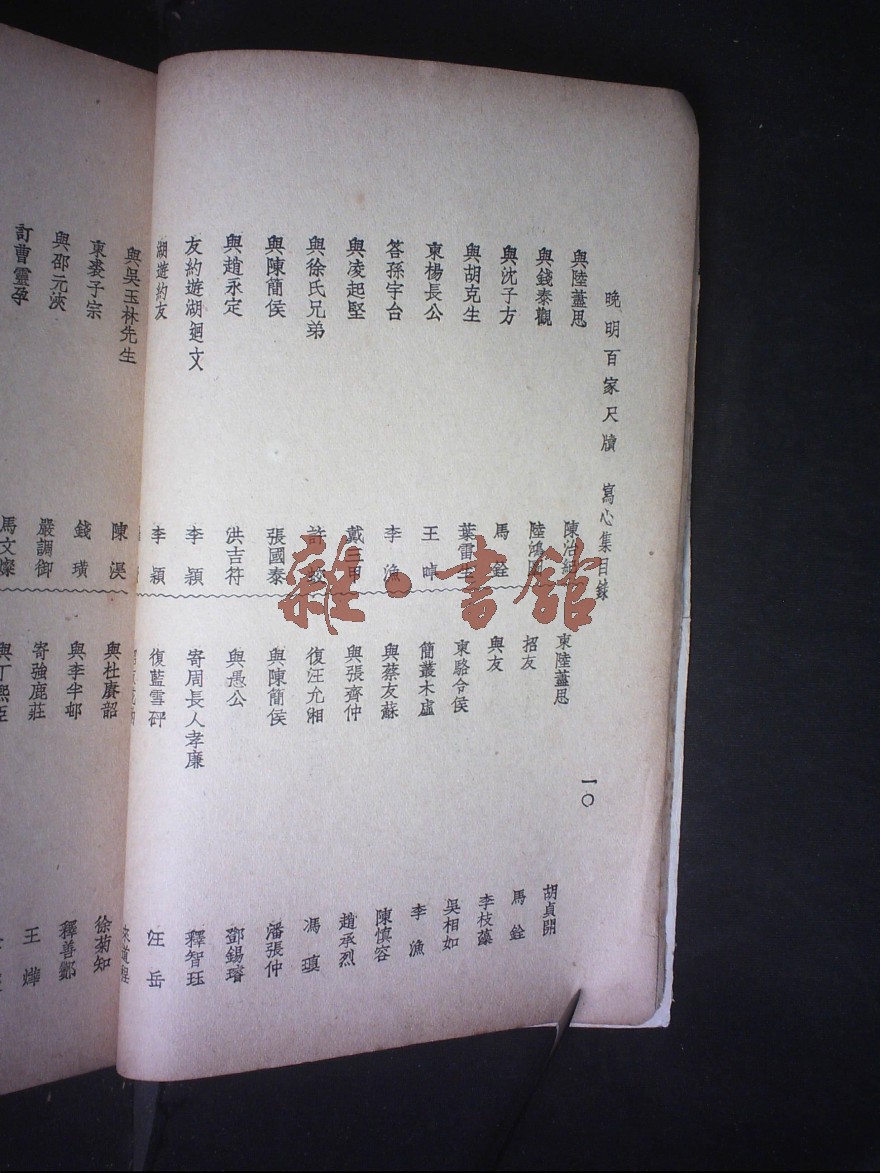 晚明百家尺牘 寫心集目錄
一〇
與陸藎思 陳治
與錢泰觀 陸鴻
與沈子方 馬銓
與胡克生 葉雷生
柬楊長公 王晫
答孫宇台 李漁
與凌起堅 戴三甲
與徐氏兄弟 許
與陳簡侯 張國泰
與趙承定 洪吉符
友約遊湖迴文 李穎
湖遊約友 李穎
柬陸藎思 胡貞開
招友 馬銓
與友 李枝藻
柬駱令侯 吳相如
簡叢木虛 李漁
與蔡友蘇 陳慎容
與張齊仲 趙承烈
復汪允湘 馮瑱
與陳簡侯 潘張仲
與愚公 鄧錫璿
寄周長人孝廉 釋智珏
復藍雪砰 汪岳
與吳玉林先生
柬婁子宗 陳淏
與邵元浹 錢璜
訂曹靈孕 嚴調御
馬文燦
與杜賡韶
與李半邨 徐菊知
寄強鹿莊 釋善鄮
與丁熙臣 王燁
雜·書館